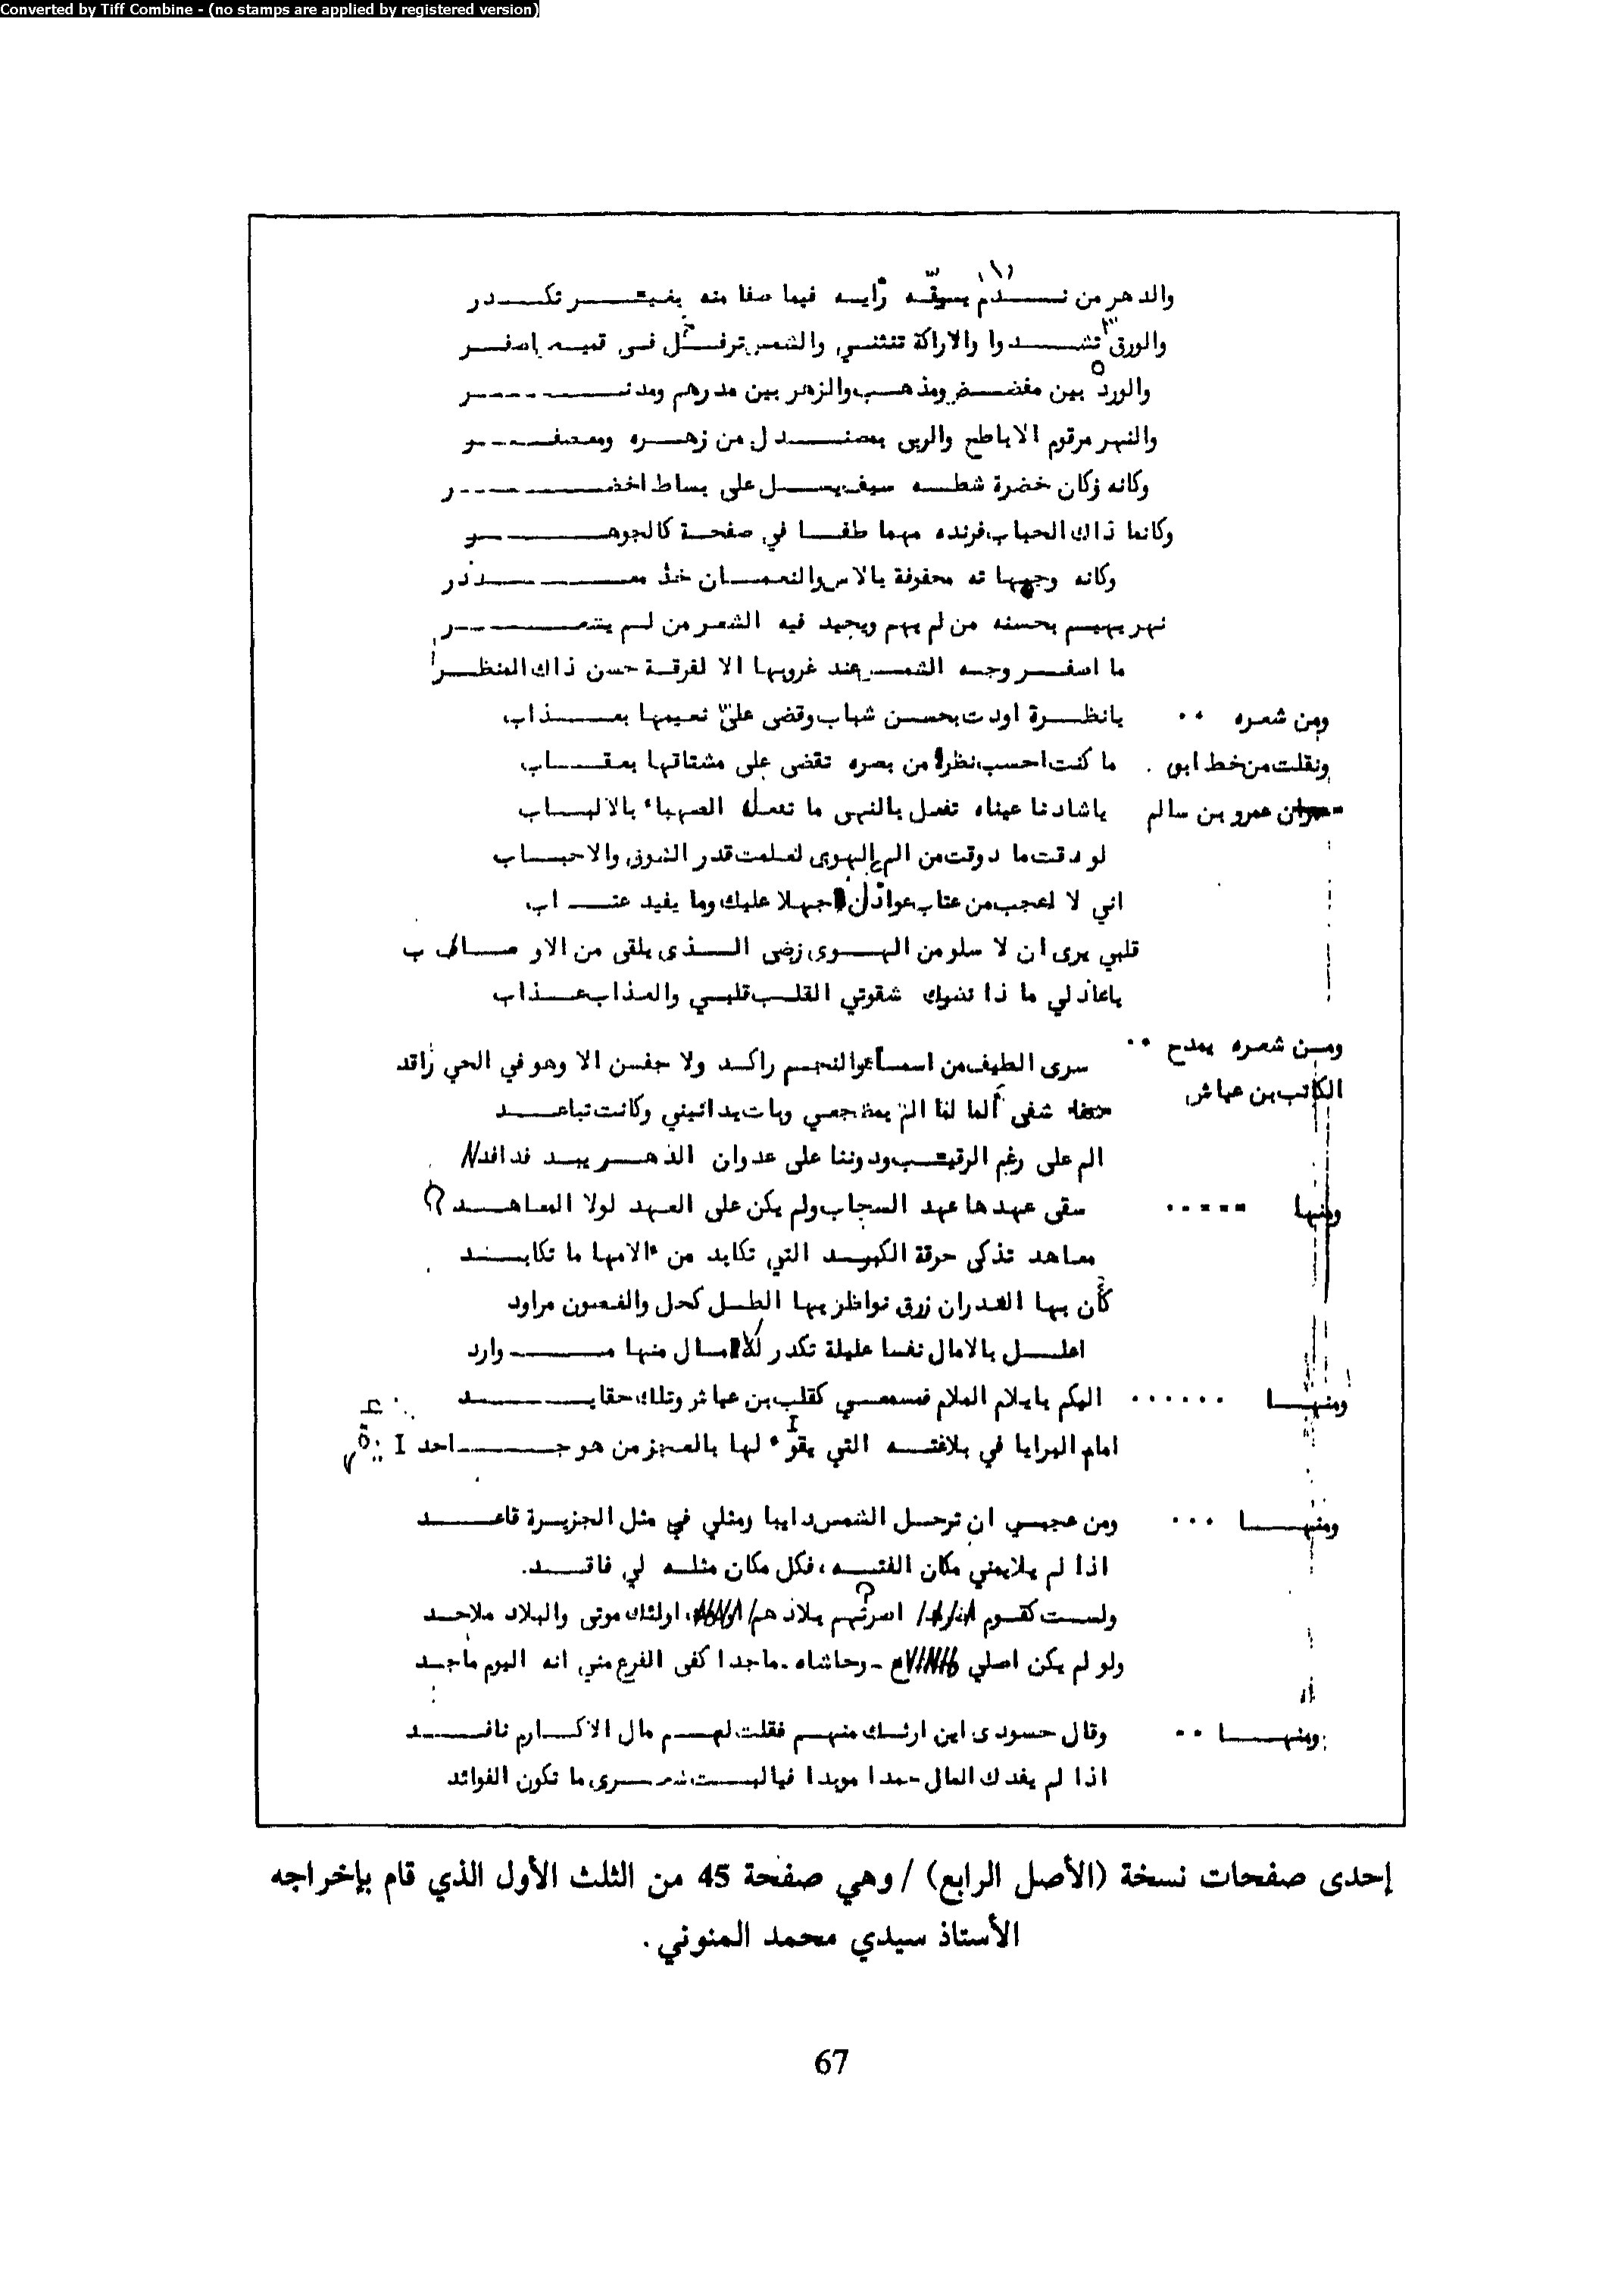 Converted by Tiff Combine - (no stamps are applied by registered version)
والدهر من نــدم يسفّه رأيه فيما صفا منه بغيــر تكــدر
والورق تشــدوا والاراكة تنثني والشمس ترفــل في قميص اصفــر
والورد بين مفضــض ومذهــب والزهر بين مدرهم ومدنــر
والنهر مرقوم الاباطح والربى بمصنــدل من زهــره ومعصفــر
وكانه وكان خضرة شطــه سيف يســل على بساط اخضــر
وكانما ذاك الحباب فرنده مهما طفــا في صفحــة كالجوهــر
وكانه وجهاته محفوفة بالاس والنعمــان خد معــذر
نهر يهيــم بحسنه من لم يهم ويجيد فيه الشعر من لــم يشعــر
ما اصفــر وجــه الشمــس عند غروبها الا لفرقــة حسن ذاك المنظــر
ومن شعره .. يانظــرة اودت بحســن شباب وقضى عليّ نعيمها بعــذاب
ونقلت من خط ابي . ما كنت احسب نظرا من بصره تقضى على مشتاقها بعقــاب
عمرو بن سالم ياشادنا عيناه تفعل بالنهى ما تفعله الصهباء بالالبــاب
لو ذقت ما ذوقت من الم الهوى لعلمت قدر الشوق والاحبــاب
اني لا لعجب من عتاب عواذل جهلا عليك وما يفيد عتــاب
قلبي يرى ان لا سلو من الهــوى رضى الــذى يلقى من الاوصــاب
ياعاذلي ما ذا تضرك شقوتي القلــب قلبــي والعذاب عــذاب
ومــن شعره يمدح .. سرى الطيف من اسمــاء والنجــم راكــد ولا جفــن الا وهو في الحي راقد
الكاتب بن عياش
شفى ألما لما الم بمضجعي وبات يدانيني وكانت تباعــد
الم على رغم الرقيــب ودوننا على عدوان الدهــر بيــد فدافد
ومنها ..... سقى عهدها عهد السحاب ولم يكن على العهد لولا المعاهــد ؟
معاهد تذكى حرقة الكبــد التي تكابد من الامها ما تكابــد
كأن بها الغدران زرق نواظر بها الطــل كحل والغصون مراود
اعلــل بالامال نفسا عليلة تكدر للامــال منها مــوارد
ومنهــا ...... اليكم يا بلام الملام فمسمعــي كقلب بن عياش وتلك حقايــد
امام البرايا في بلاغتــه التي يقر لها بالعجز من هو جــاحد I
ومنهــا ... ومن عجبــي ان ترحــل الشمس دايبا ومثلي في مثل الجزيــرة قاعــد
اذا لم يلايمني مكان الفتــه ، فكل مكان مثلــه لي فاقــد.
ولســت كقــوم اسرتهم بلادهم اولئك موتى والبلاد ملاحــد
ولو لم يكن اصلي - وحاشاه - ماجدا كفى الفرع مني انه اليوم ماجــد
ومنهــا .. وقال حسودى اين ارثــك منهــم فقلت لهــم مال الاكــارم نافــد
اذا لم يفدك المال حمدا موبدا فيا ليــت شعــرى ما تكون الفوائد
إحدى صفحات نسخة (الأصل الرابع) / وهي صفحة 45 من الثلث الأول الذي قام بإخراجه
الأستاذ سيدي محمد المنوني .
67